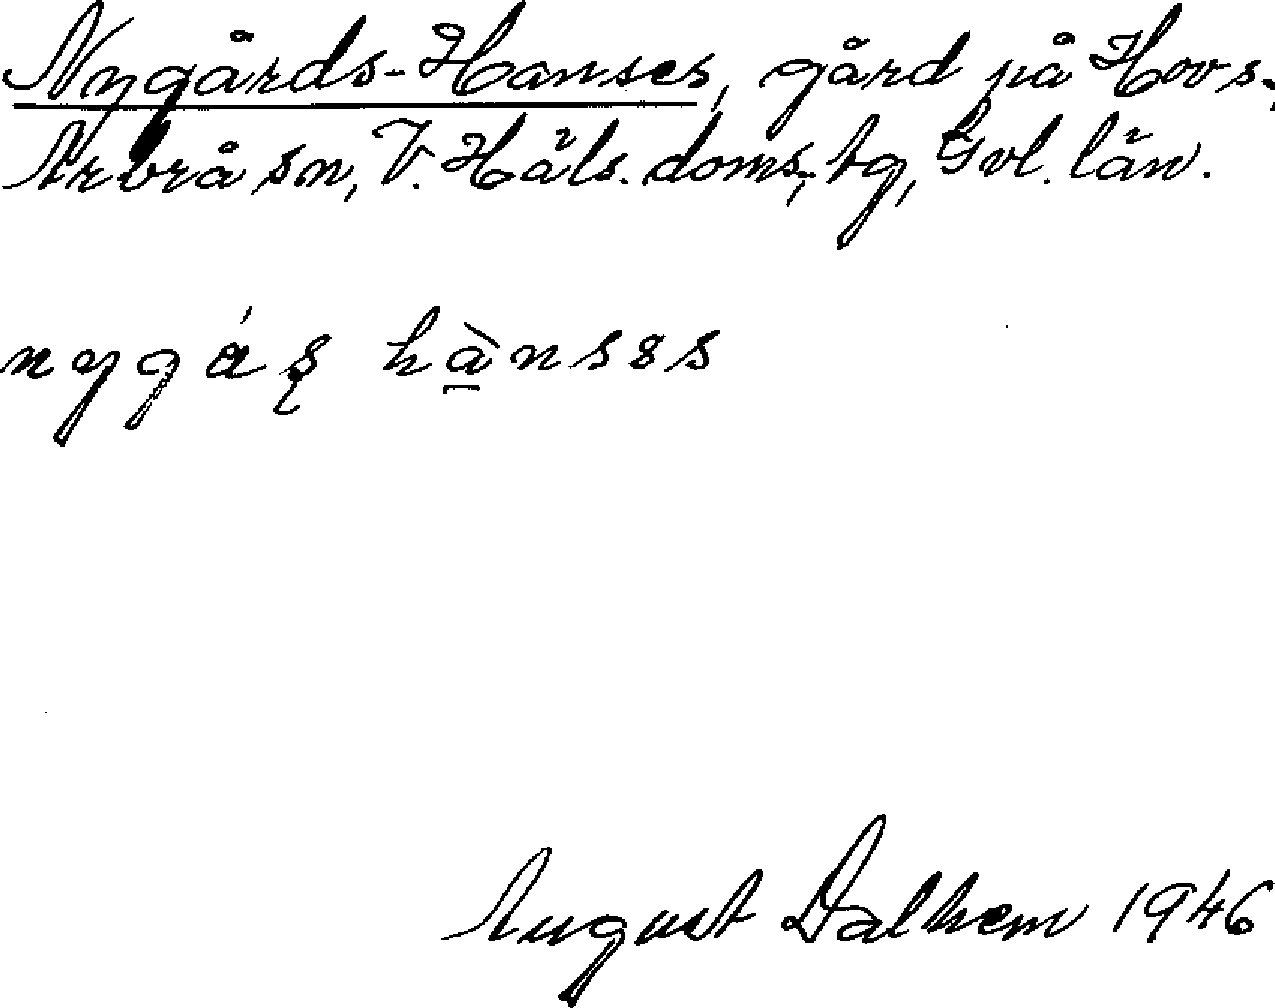 Nygårds-Hanses, gård på Hovs,
Arbrå sn, V. Häls. doms. tg, Gvl. län.
nygáʂ hànsəs
August Dalhem 1946